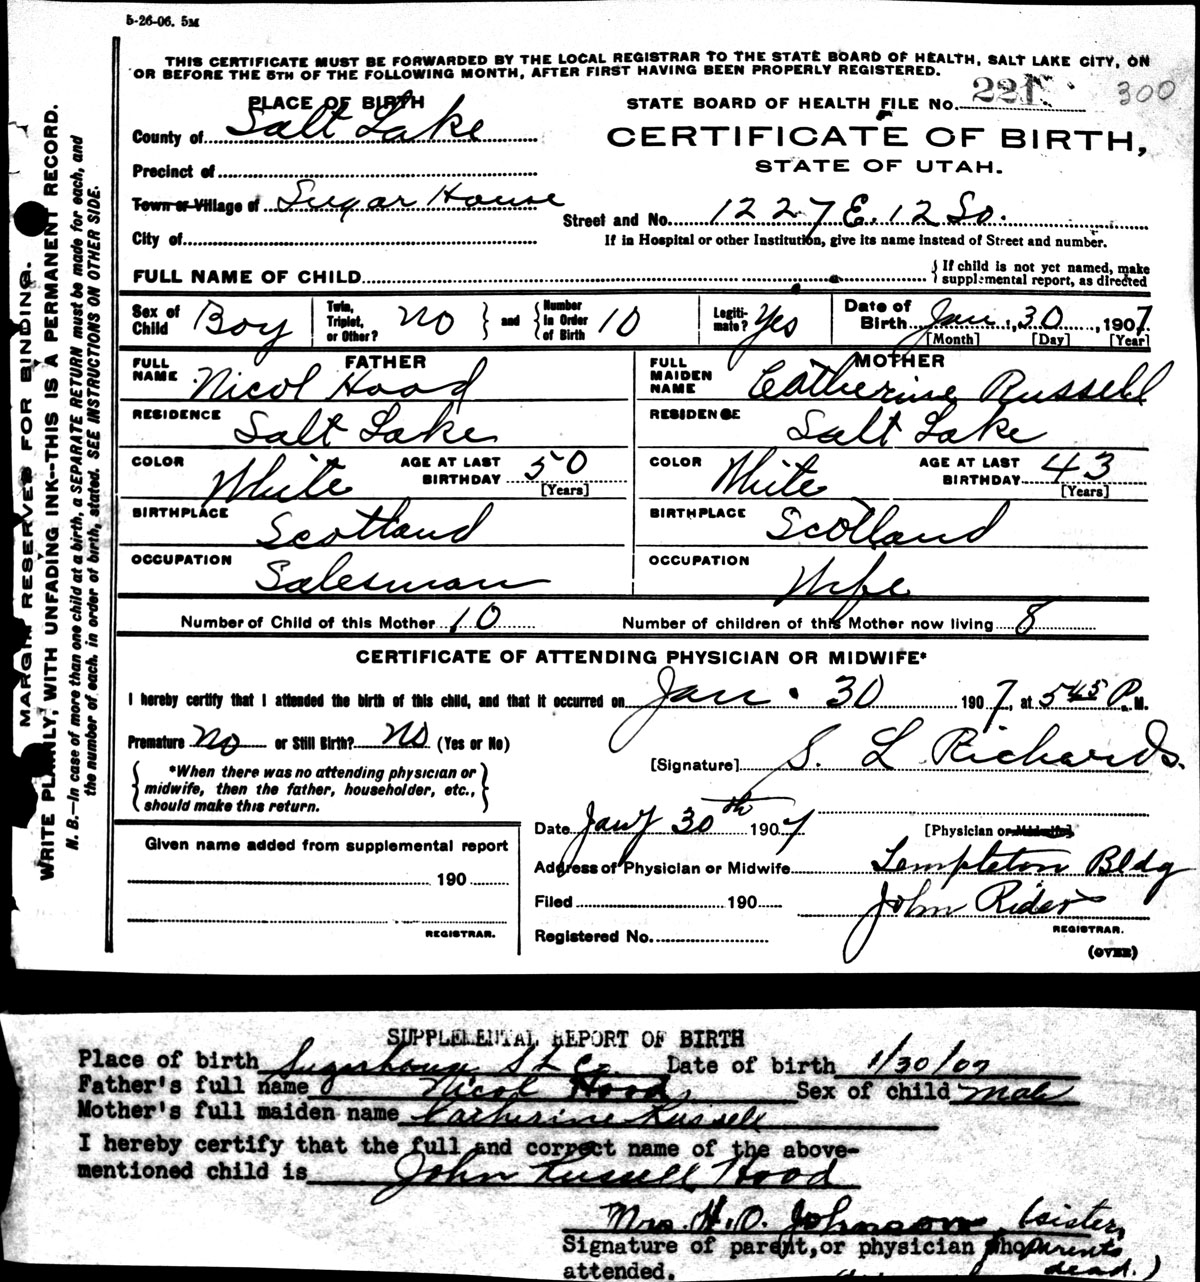 5-26-06. 5M
THIS CERTIFICATE MUST BE FORWARDED BY THE LOCAL REGISTRAR TO THE STATE BOARD OF HEALTH, SALT LAKE CITY, ON
OR BEFORE THE 5TH OF THE FOLLOWING MONTH, AFTER FIRST HAVING BEEN PROPERLY REGISTERED.
PLACE OF BIRTH
STATE BOARD OF HEALTH FILE No. 221 300
County of Salt Lake
CERTIFICATE OF BIRTH,
STATE OF UTAH.
Precinct of
Town or Village of Sugar House
Street and No. 1227 E. 12 So.
City of
If in Hospital or other Institution, give its name instead of Street and number.
FULL NAME OF CHILD
{ If child is not yet named, make
supplemental report, as directed
Sex of Child Boy
Twin, Triplet, or Other? No } and { Number In Order of Birth 10
Legiti-mate? Yes
Date of Birth Jan. 30, 1907
[Month] [Day] [Year]
FATHER
FULL NAME Nicol Hood
RESIDENCE Salt Lake
COLOR White AGE AT LAST BIRTHDAY 50 [Years]
BIRTHPLACE Scotland
OCCUPATION Salesman
MOTHER
FULL MAIDEN NAME Catherine Russell
RESIDENCE Salt Lake
COLOR White AGE AT LAST BIRTHDAY 43 [Years]
BIRTHPLACE Scotland
OCCUPATION Wife
Number of Child of this Mother 10 Number of children of this Mother now living 8
CERTIFICATE OF ATTENDING PHYSICIAN OR MIDWIFE*
I hereby certify that I attended the birth of this child, and that it occurred on Jan. 30 1907, at 545 P. M.
Premature No or Still Birth? No (Yes or No)
[Signature] S. L Richards.
{ *When there was no attending physician or
midwife, then the father, householder, etc.,
should make this return. }
Date Jany 30th 1907
[Physician or Midwife]
Address of Physician or Midwife Templeton Bldg
Filed 190 John Rider
REGISTRAR.
Registered No.
(OVER)
Given name added from supplemental report
190
REGISTRAR.
MARGIN RESERVED FOR BINDING.
WRITE PLAINLY, WITH UNFADING INK--THIS IS A PERMANENT RECORD.
N. B.—In case of more than one child at a birth, a SEPARATE RETURN must be made for each, and
the number of each, in order of birth, stated. SEE INSTRUCTIONS ON OTHER SIDE.
SUPPLEMENTAL REPORT OF BIRTH
Place of birth Sugarhouse S L Co. Date of birth 1/30/07
Father's full name Nicol Hood, Sex of child Male
Mother's full maiden name Catherine Russell
I hereby certify that the full and correct name of the above-
mentioned child is John Russell Hood
Mrs. H. O. Johnson (sister,
Signature of parent, or physician who parents
attended. dead.)